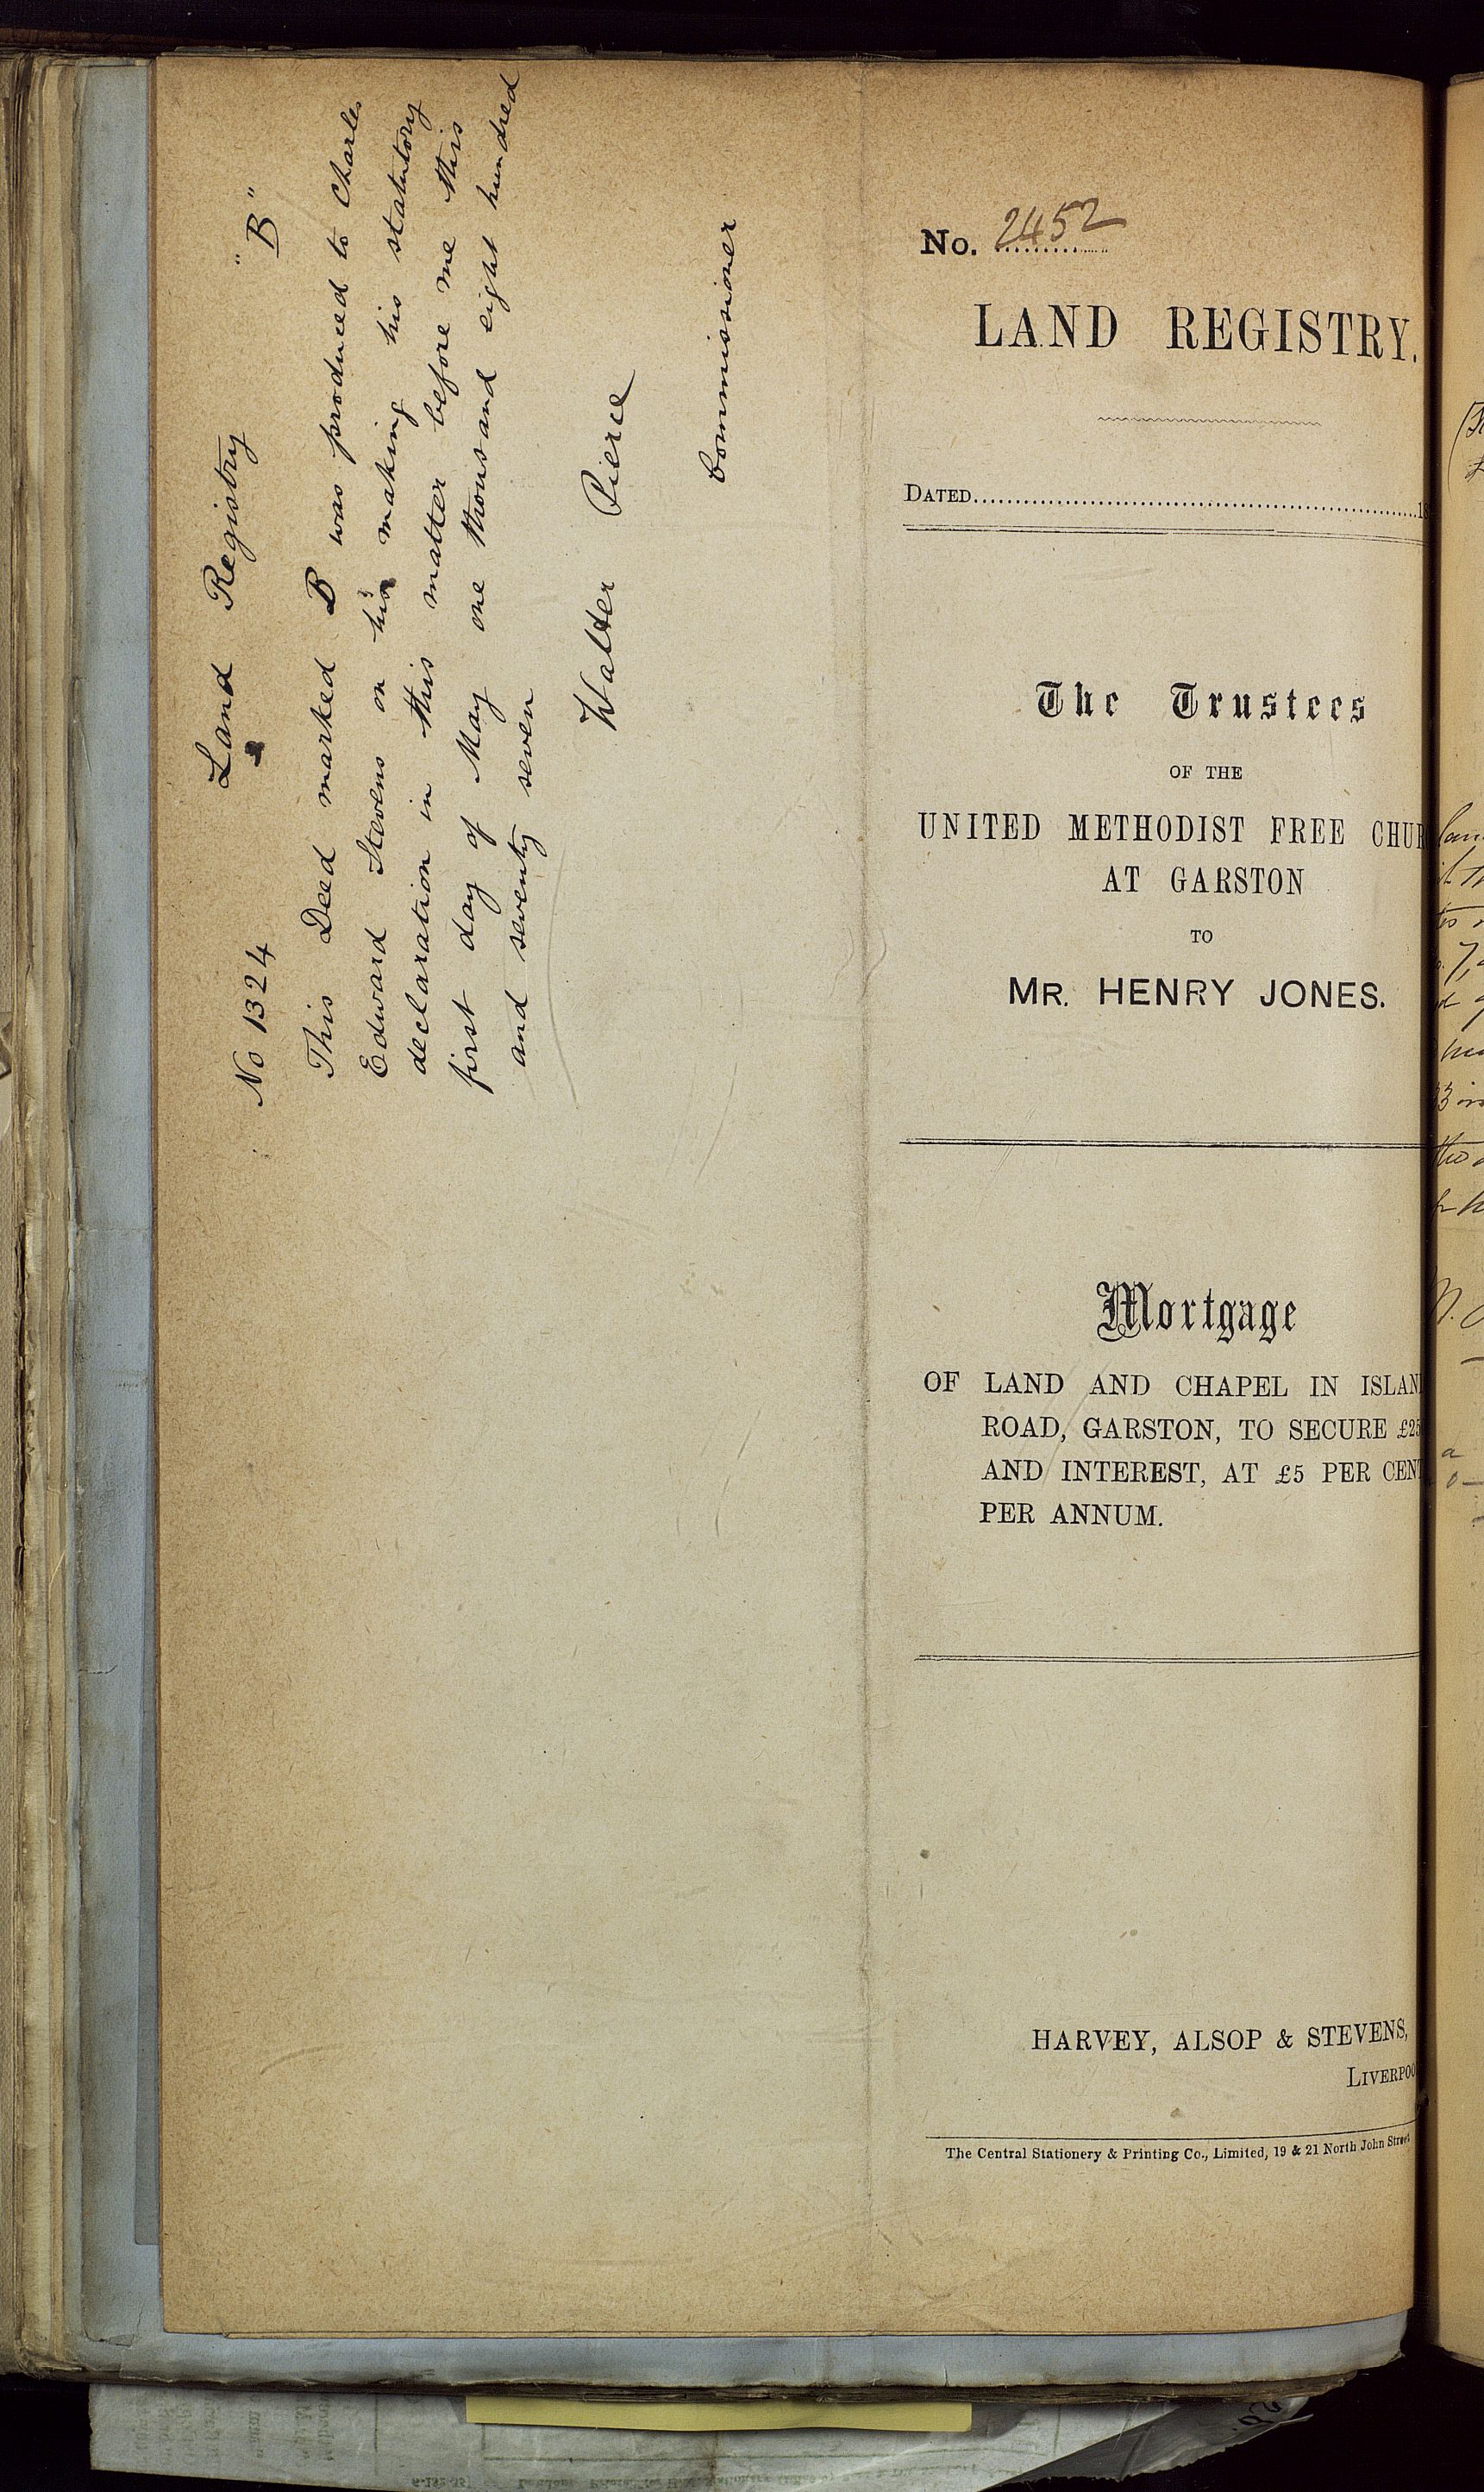 No 1324 Land Registry "B"
This Deed marked B was produced to Charles
Edward Stevens on his making his statutory
declaration in this matter before me this
first day of May one thousand eight hundred
and seventy seven
Walter Pierce
Commissioner
No. 2452
LAND REGISTRY.
DATED
The Trustees
OF THE
UNITED METHODIST FREE CHUR
AT GARSTON
TO
MR. HENRY JONES.
Mortgage
OF LAND AND CHAPEL IN ISLAN
ROAD, GARSTON, TO SECURE £25
AND INTEREST, AT £5 PER CENT
PER ANNUM.
HARVEY, ALSOP & STEVENS,
LIVERPOO
The Central Stationery & Printing Co., Limited, 19 & 21 North John Street